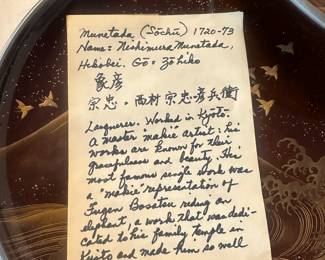 Munetada (Sōchū) 1720-73
Name: Nishimura Munetada,
Hikobei. Gō: Zōhiko
象彦
宗忠・西村宗忠彦兵衛
Lacquerer. Worked in Kyōto.
A master makie artist: his
works are known for their
gracefulness and beauty. His
most famous single work was
a "makie" representation of
Fugen Bosatsu riding an
elephant, a work that was dedi-
cated to his family temple in
Kyoto and made him so well